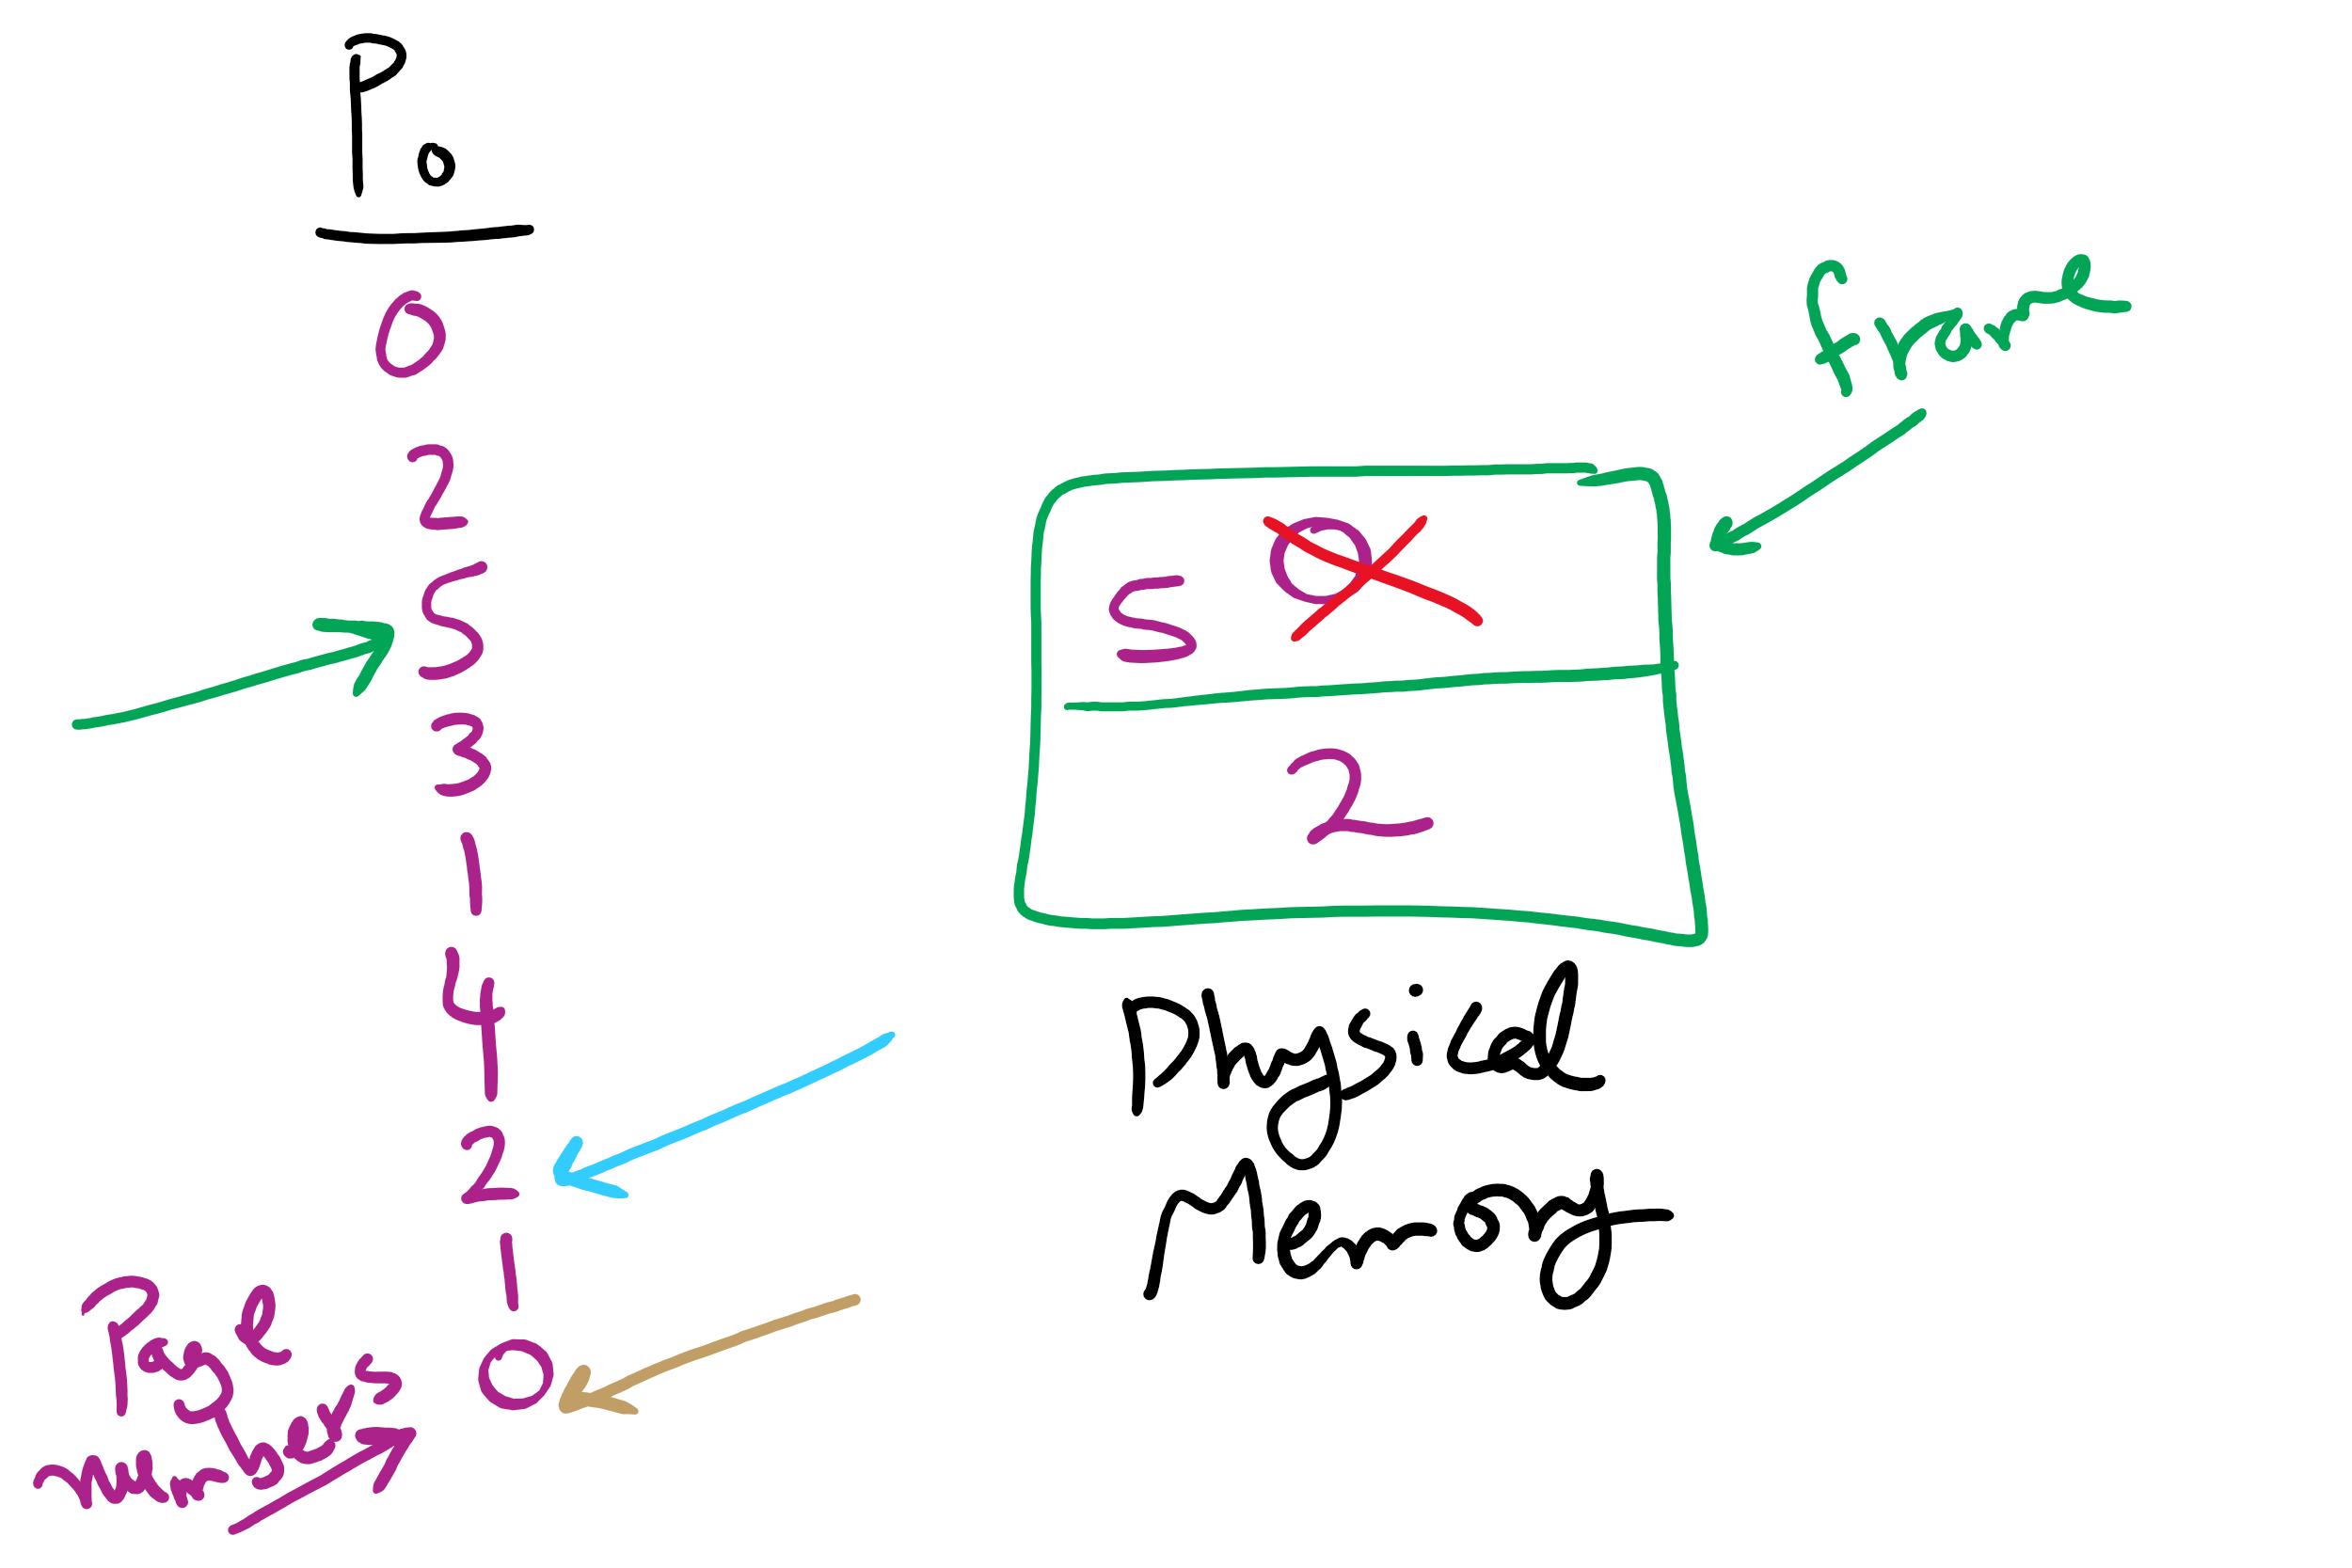 P0
0
2
5
3
1
4
2
1
0
Page
Numbers
frame
5 0
2
Physical
Memory